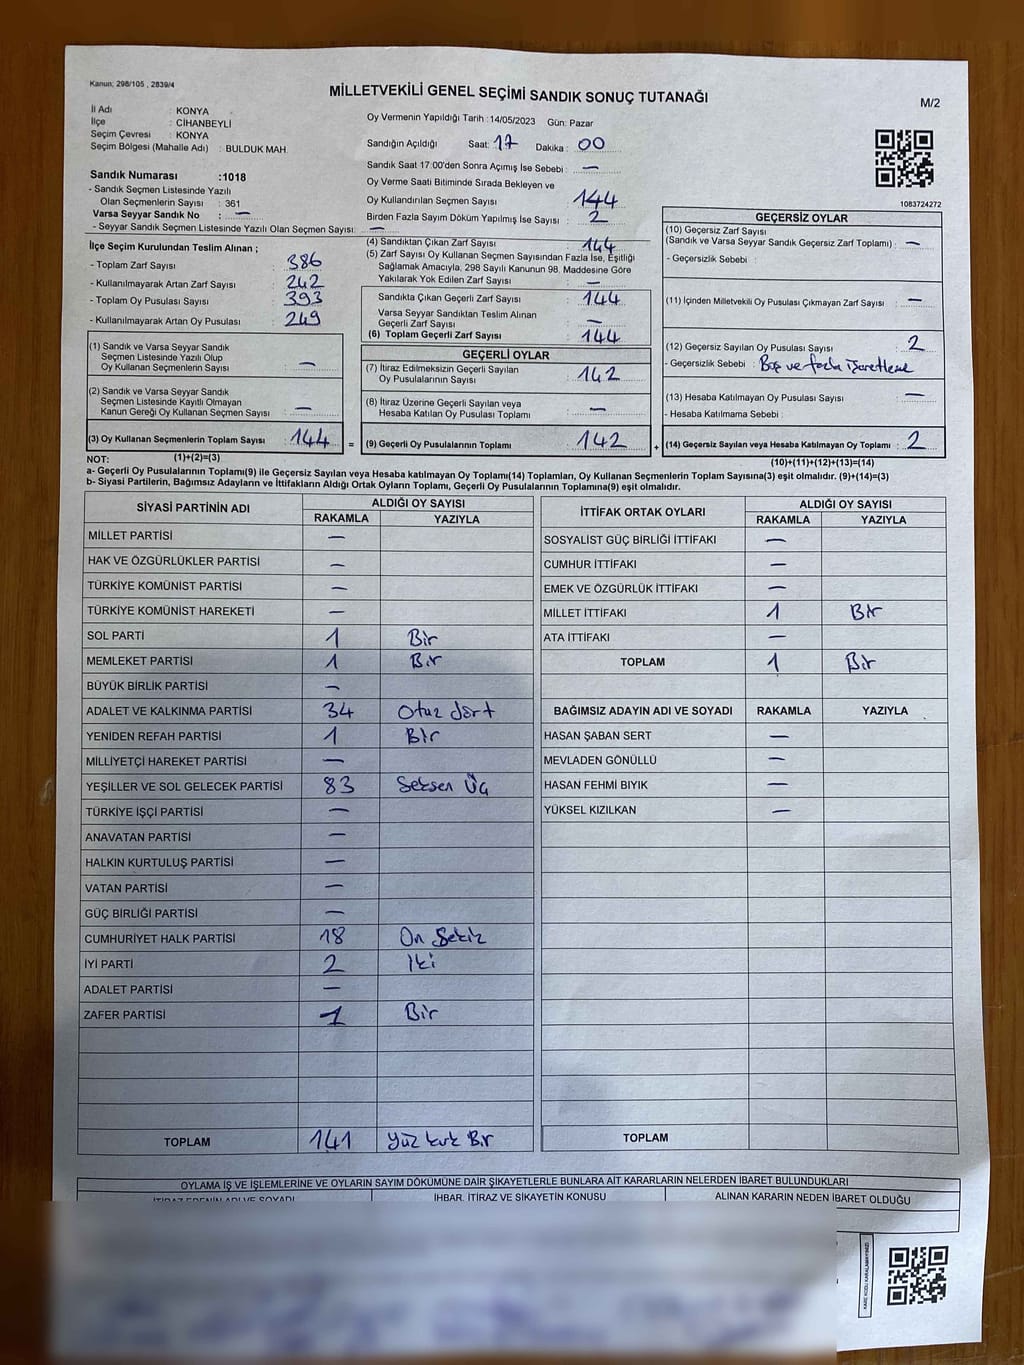 Kanun; 298/105 , 2839/4
MİLLETVEKİLİ GENEL SEÇİMİ SANDIK SONUÇ TUTANAĞI
M/2
İl Adı : KONYA
İlçe : CİHANBEYLİ
Seçim Çevresi : KONYA
Seçim Bölgesi (Mahalle Adı) : BULDUK MAH.
Sandık Numarası :1018
- Sandık Seçmen Listesinde Yazılı
Olan Seçmenlerin Sayısı : 361
Varsa Seyyar Sandık No : —
- Seyyar Sandık Seçmen Listesinde Yazılı Olan Seçmen Sayısı: —
İlçe Seçim Kurulundan Teslim Alınan ;
- Toplam Zarf Sayısı : 386
- Kullanılmayarak Artan Zarf Sayısı : 242
- Toplam Oy Pusulası Sayısı : 393
- Kullanılmayarak Artan Oy Pusulası : 249
(1) Sandık ve Varsa Seyyar Sandık
Seçmen Listesinde Yazılı Olup
Oy Kullanan Seçmenlerin Sayısı : —
(2) Sandık ve Varsa Seyyar Sandık
Seçmen Listesinde Kayıtlı Olmayan
Kanun Gereği Oy Kullanan Seçmen Sayısı : —
(3) Oy Kullanan Seçmenlerin Toplam Sayısı : 144 =
Oy Vermenin Yapıldığı Tarih : 14/05/2023 Gün: Pazar
Sandığın Açıldığı Saat: 17 Dakika : 00
Sandık Saat 17:00'den Sonra Açımış İse Sebebi : —
Oy Verme Saati Bitiminde Sırada Bekleyen ve
Oy Kullandırılan Seçmen Sayısı : 144
Birden Fazla Sayım Döküm Yapılmış İse Sayısı : 2
(4) Sandıktan Çıkan Zarf Sayısı : 144
(5) Zarf Sayısı Oy Kullanan Seçmen Sayısından Fazla İse, Eşitliği
Sağlamak Amacıyla, 298 Sayılı Kanunun 98. Maddesine Göre
Yakılarak Yok Edilen Zarf Sayısı : —
Sandıkta Çıkan Geçerli Zarf Sayısı : 144
Varsa Seyyar Sandıktan Teslim Alınan
Geçerli Zarf Sayısı : —
(6) Toplam Geçerli Zarf Sayısı : 144
GEÇERLİ OYLAR
(7) İtiraz Edilmeksizin Geçerli Sayılan
Oy Pusulalarının Sayısı : 142
(8) İtiraz Üzerine Geçerli Sayılan veya
Hesaba Katılan Oy Pusulası Toplamı : —
(9) Geçerli Oy Pusulalarının Toplamı : 142 +
1083724272
GEÇERSİZ OYLAR
(10) Geçersiz Zarf Sayısı
(Sandık ve Varsa Seyyar Sandık Geçersiz Zarf Toplamı) : —
- Geçersizlik Sebebi :
(11) İçinden Milletvekili Oy Pusulası Çıkmayan Zarf Sayısı : —
(12) Geçersiz Sayılan Oy Pusulası Sayısı : 2
- Geçersizlik Sebebi : Boş ve fazla işaretleme
(13) Hesaba Katılmayan Oy Pusulası Sayısı : —
- Hesaba Katılmama Sebebi :
(14) Geçersiz Sayılan veya Hesaba Katılmayan Oy Toplamı : 2
NOT: (1)+(2)=(3)
(10)+(11)+(12)+(13)=(14)
a- Geçerli Oy Pusulalarının Toplamı(9) ile Geçersiz Sayılan veya Hesaba katılmayan Oy Toplamı(14) Toplamları, Oy Kullanan Seçmenlerin Toplam Sayısına(3) eşit olmalıdır. (9)+(14)=(3)
b- Siyasi Partilerin, Bağımsız Adayların ve İttifakların Aldığı Ortak Oyların Toplamı, Geçerli Oy Pusulalarının Toplamına(9) eşit olmalıdır.
SİYASİ PARTİNİN ADI ALDIĞI OY SAYISI
RAKAMLA YAZIYLA
MİLLET PARTİSİ —
HAK VE ÖZGÜRLÜKLER PARTİSİ —
TÜRKİYE KOMÜNİST PARTİSİ —
TÜRKİYE KOMÜNİST HAREKETİ —
SOL PARTİ 1 Bir
MEMLEKET PARTİSİ 1 Bir
BÜYÜK BİRLİK PARTİSİ —
ADALET VE KALKINMA PARTİSİ 34 Otuz dört
YENİDEN REFAH PARTİSİ 1 Bir
MİLLİYETÇİ HAREKET PARTİSİ —
YEŞİLLER VE SOL GELECEK PARTİSİ 83 Seksen Üç
TÜRKİYE İŞÇİ PARTİSİ —
ANAVATAN PARTİSİ —
HALKIN KURTULUŞ PARTİSİ —
VATAN PARTİSİ —
GÜÇ BİRLİĞİ PARTİSİ —
CUMHURİYET HALK PARTİSİ 18 On Sekiz
İYİ PARTİ 2 İki
ADALET PARTİSİ —
ZAFER PARTİSİ 1 Bir
TOPLAM 141 Yüz kırk Bir
İTTİFAK ORTAK OYLARI ALDIĞI OY SAYISI
RAKAMLA YAZIYLA
SOSYALİST GÜÇ BİRLİĞİ İTTİFAKI —
CUMHUR İTTİFAKI —
EMEK VE ÖZGÜRLÜK İTTİFAKI —
MİLLET İTTİFAKI 1 Bir
ATA İTTİFAKI —
TOPLAM 1 Bir
BAĞIMSIZ ADAYIN ADI VE SOYADI RAKAMLA YAZIYLA
HASAN ŞABAN SERT —
MEVLADEN GÖNÜLLÜ —
HASAN FEHMİ BIYIK —
YÜKSEL KIZILKAN —
TOPLAM
OYLAMA İŞ VE İŞLEMLERİNE VE OYLARIN SAYIM DÖKÜMÜNE DAİR ŞİKAYETLERLE BUNLARA AİT KARARLARIN NELERDEN İBARET BULUNDUKLARI
İTİRAZ EDENİN ADI VE SOYADI İHBAR, İTİRAZ VE ŞİKAYETİN KONUSU ALINAN KARARIN NEDEN İBARET OLDUĞU
KARE KODU KARALAMAYINIZ!